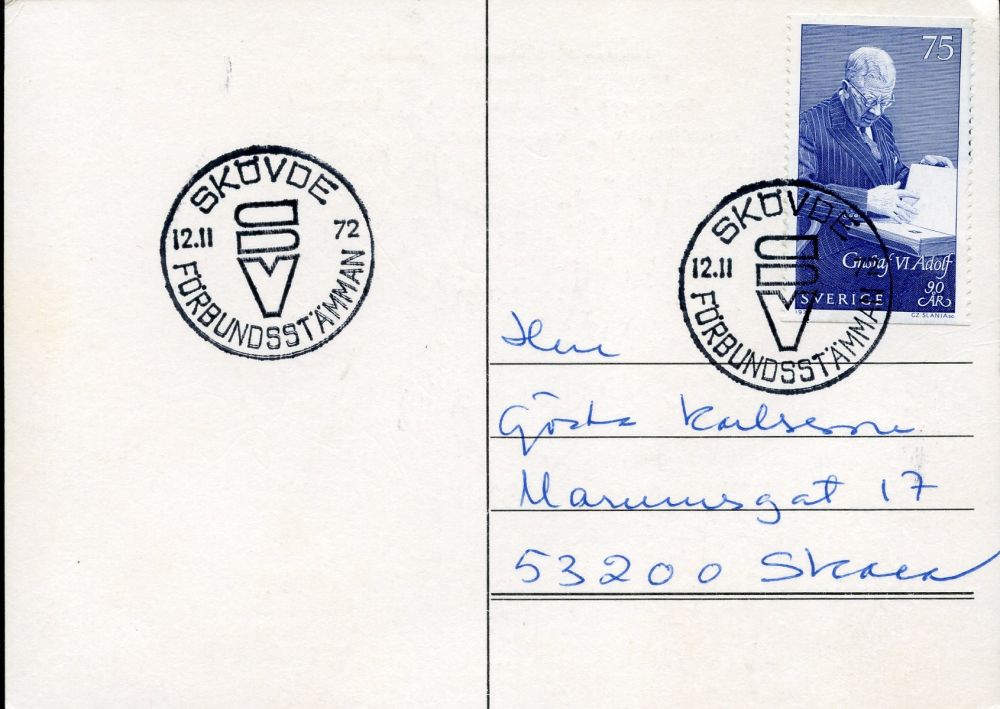 SKÖVDE
12.11 72
FÖRBUNDSSTÄMMAN
75
Gustaf VI Adolf
90
ÅR
SVERIGE
CZ SLANIA sc.
SKÖVDE
12.11
FÖRBUNDSSTÄMMAN
Herr
Gösta Karlsson
Marumsgat 17
53200 Skara